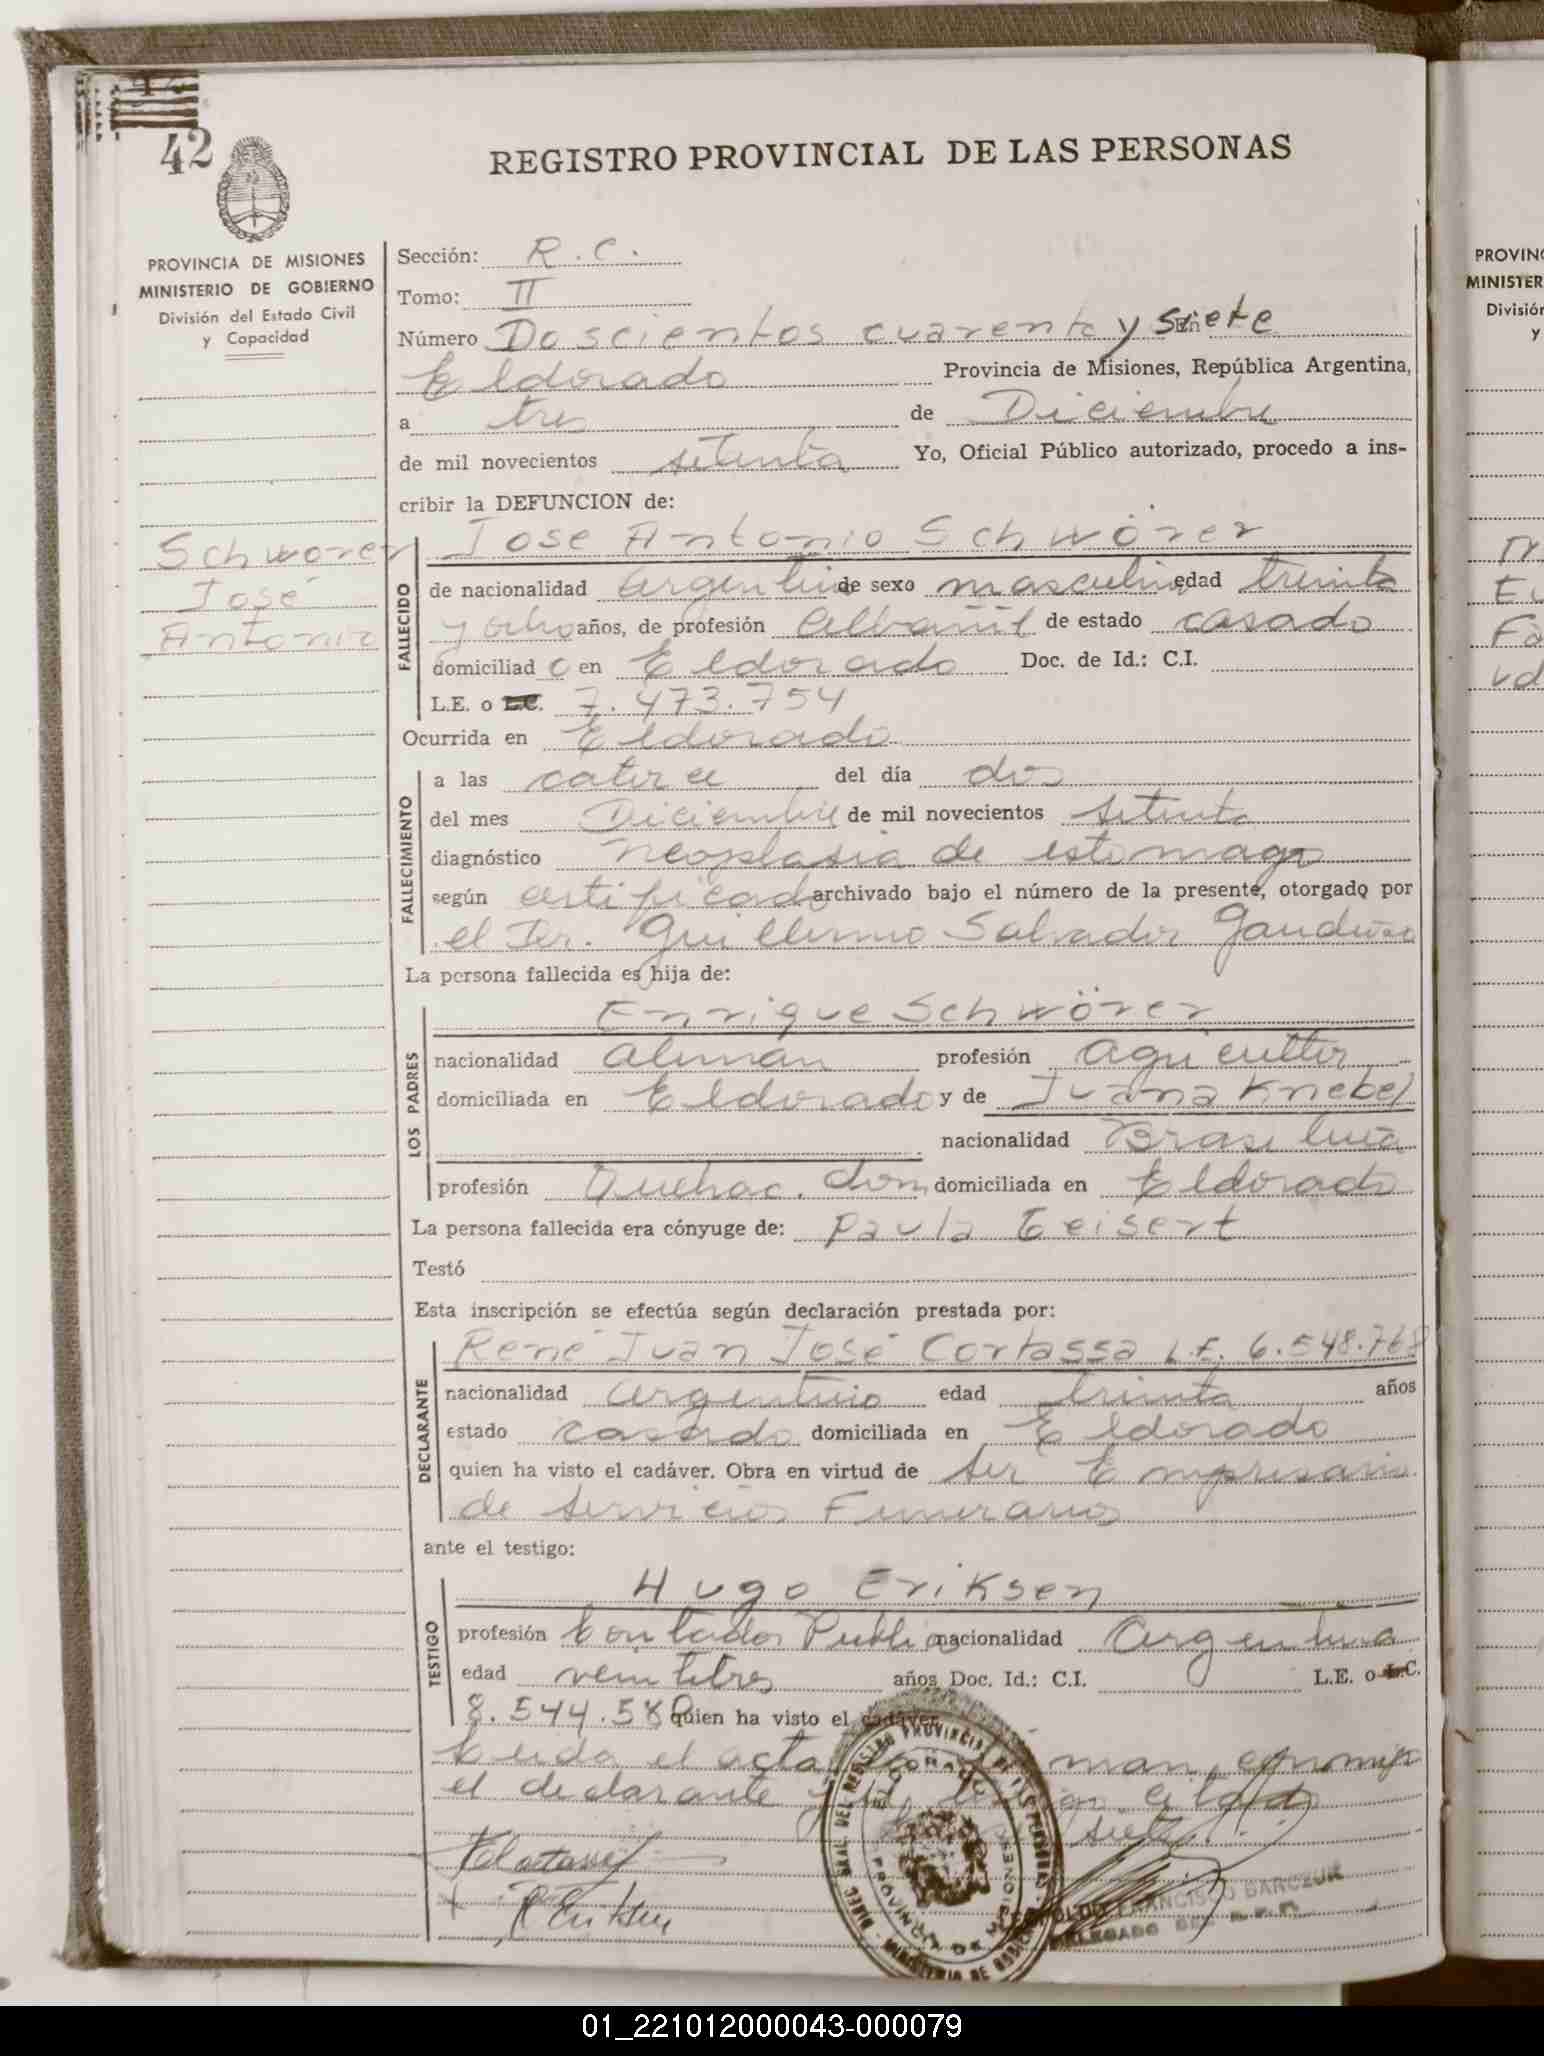 42
REGISTRO PROVINCIAL DE LAS PERSONAS
PROVINCIA DE MISIONES
MINISTERIO DE GOBIERNO
División del Estado Civil
y Capacidad
Sección: R. C.
Tomo: II
Número Doscientos cuarenta y siete En
Eldorado Provincia de Misiones, República Argentina,
a tres de Diciembre
de mil novecientos setenta Yo, Oficial Público autorizado, procedo a ins-
cribir la DEFUNCION de:
Schworer
José
Antonio
FALLECIDO
Jose Antonio Schwörer
de nacionalidad argentino de sexo masculino edad treinta
y ocho años, de profesión Albañil de estado casado
domiciliad o en Eldorado Doc. de Id.: C.I.
L.E. o L.C. 7.473.754
Ocurrida en Eldorado
FALLECIMIENTO
a las catorce del día dos
del mes Diciembre de mil novecientos setenta
diagnóstico neoplasia de estomago
según certificado archivado bajo el número de la presente, otorgado por
el Dr. Guillermo Salvador
La persona fallecida es hija de:
LOS PADRES
Enrique Schwörer
nacionalidad aleman profesión agricultor
domiciliada en Eldorado y de Juana Knebel
nacionalidad Brasileña
profesión Quehac. dom. domiciliada en Eldorado
La persona fallecida era cónyuge de: Paula Eeisert
Testó
Esta inscripción se efectúa según declaración prestada por:
DECLARANTE
René Juan José Cortassa L.E. 6.548.768
nacionalidad argentino edad treinta años
estado casado domiciliada en Eldorado
quien ha visto el cadáver. Obra en virtud de ser Empresario
de Servicios Funerarios
ante el testigo:
TESTIGO
Hugo Eriksen
profesión Contador Publico nacionalidad Argentina
edad veintitres años Doc. Id.: C.I. L.E. o L.C.
8.544.580 quien ha visto el cadáver
Leida el acta man conmigo
el declarante y el testigo citado
DIREC. GRAL. DEL REGISTRO PROVINCIAL DE LAS PERSONAS
ELDORADO
PROVINCIA DE MISIONES
MINISTERIO DE
FRANCISCO BARCZUK
DELEGADO DEL R.P.P.
PROVINC
MINISTER
División
y
01_221012000043-000079